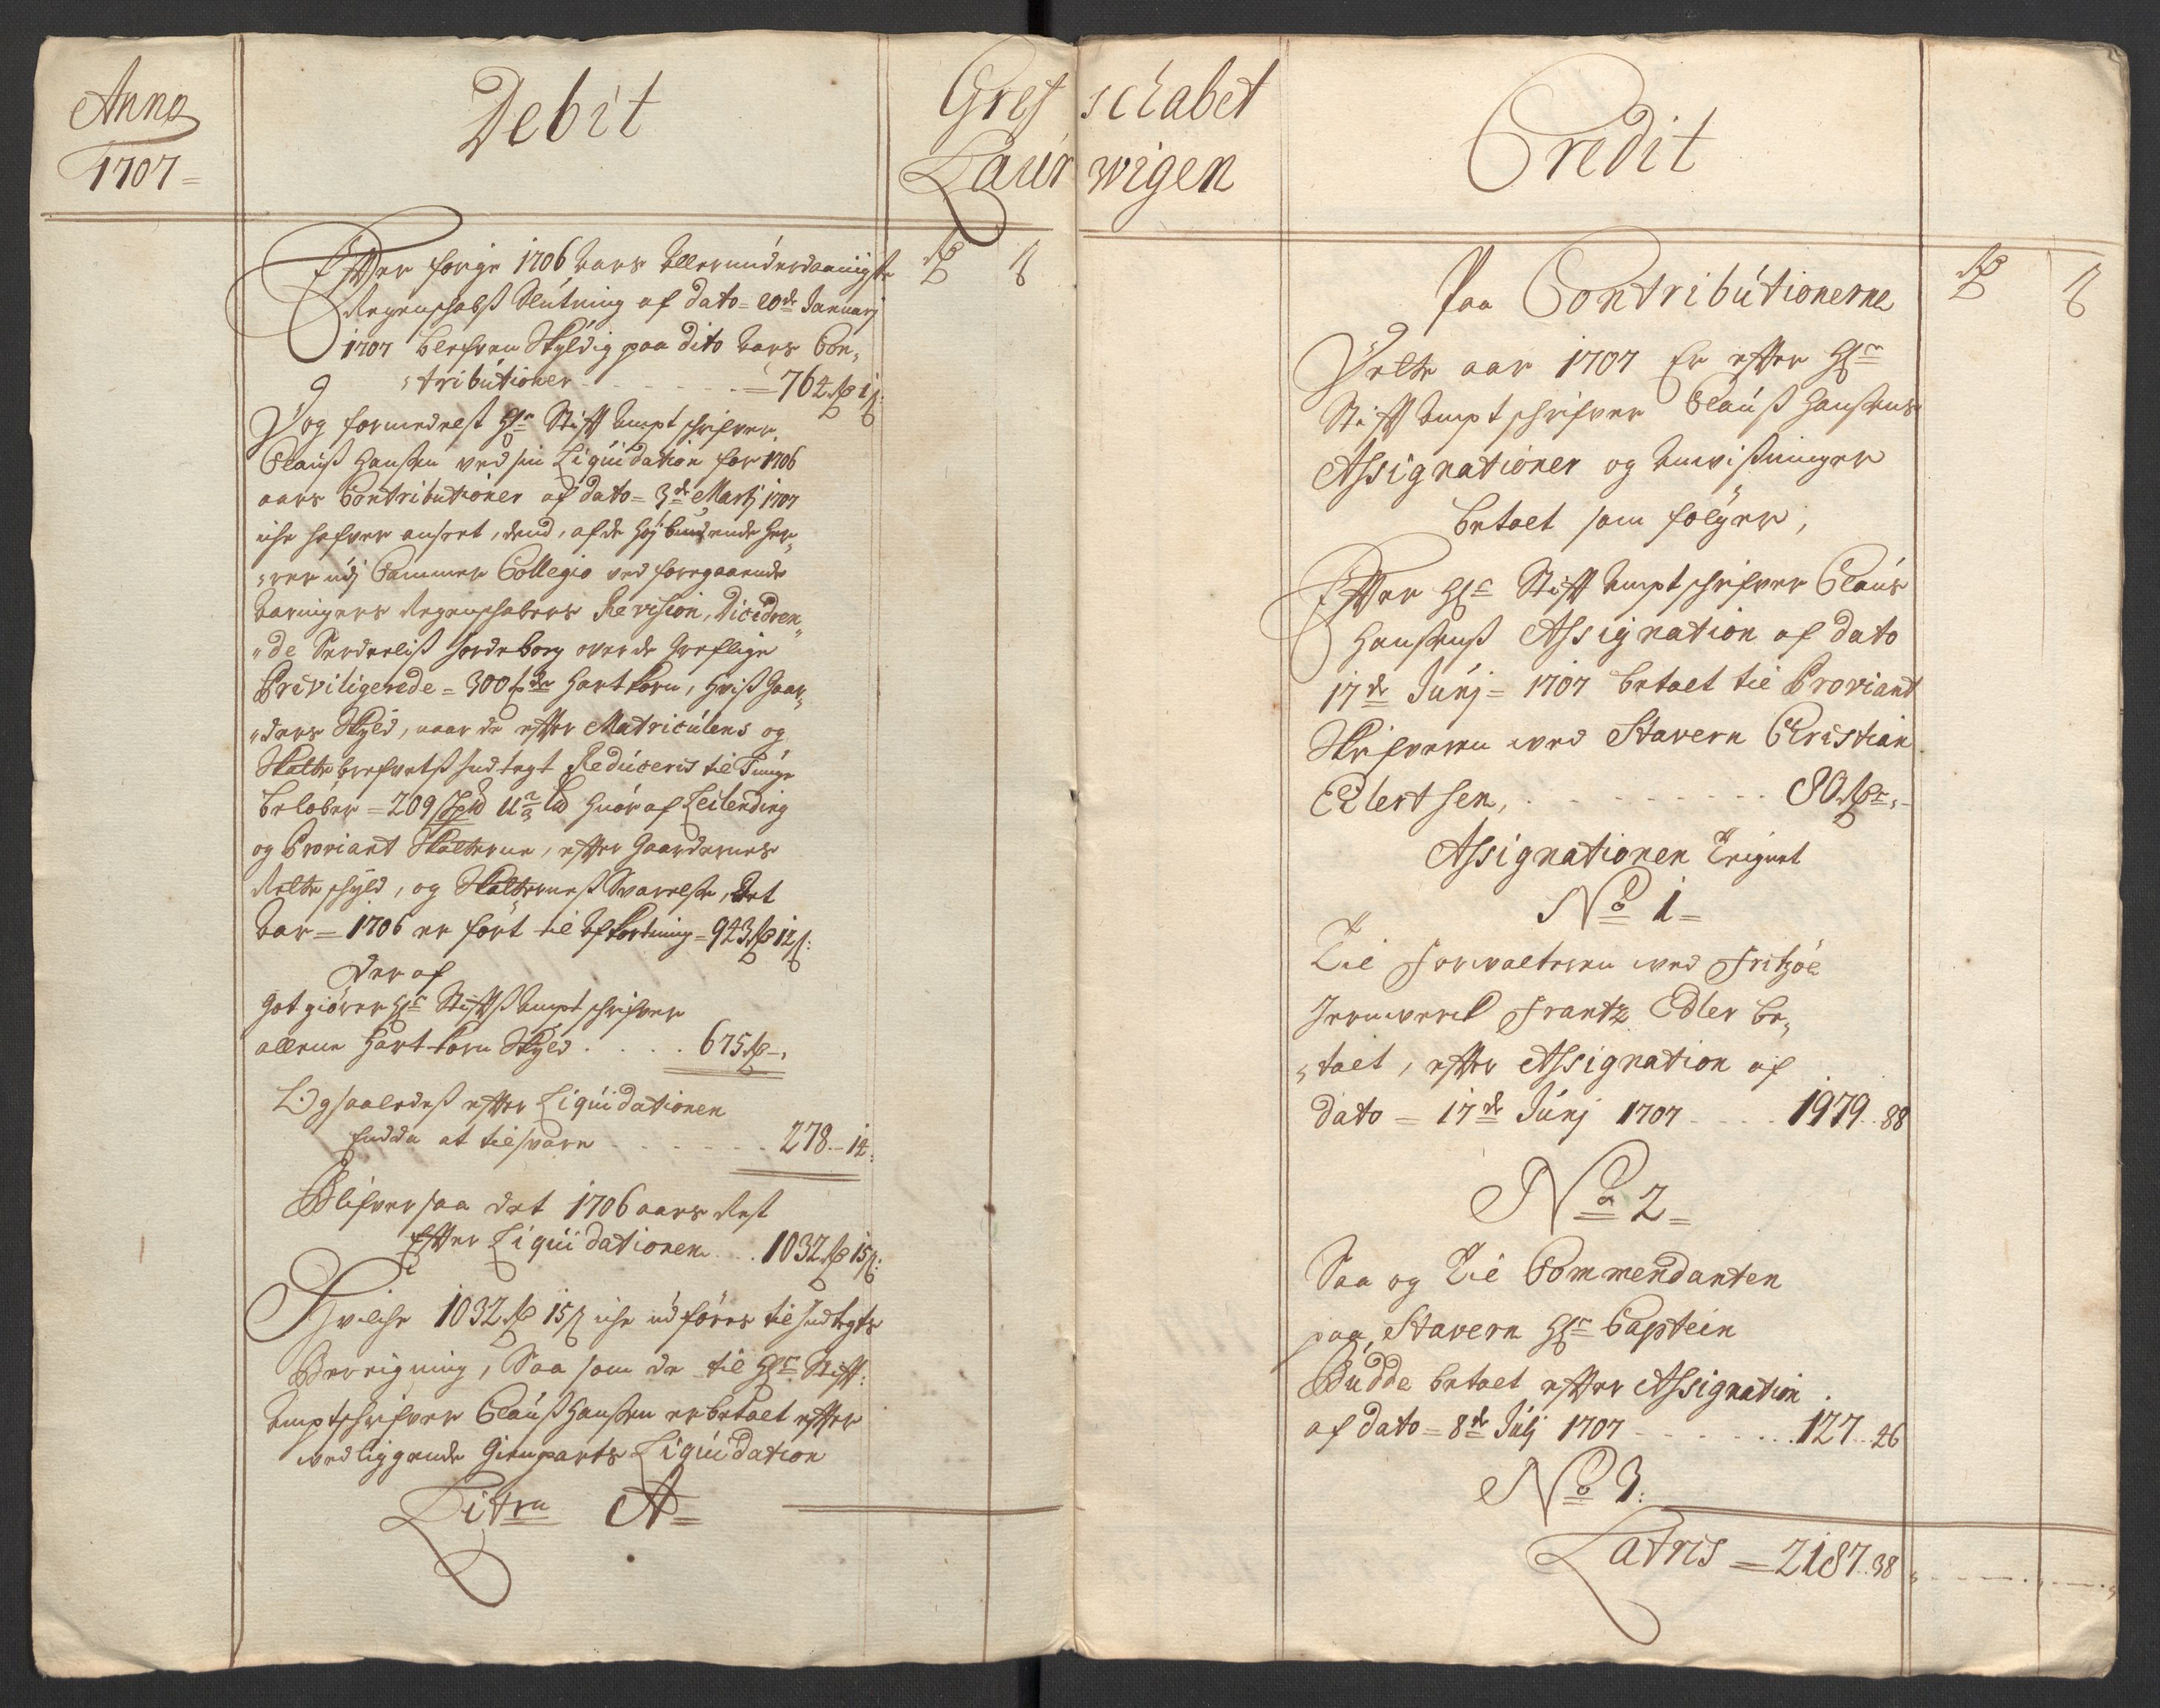 Anno
1707
Debit
Grefschabet
Laurwigen
Credit
Efter forige 1706 Aars Allerunderdaanigste
Regenschabs Slutning af dato 20de Januarj
1707 blefven Skyldig paa dito Aars Con-
tributioner 764 Rd 1 s:
Og formedelst Hr Stifft Ampt skrifver
Clauss Hanssen ved sin Liquidation for 1706
aars Contributioner af dato 3de Martj 1707
iche hafver anseet, dend, af de Høj
rer udj Cammer Collegio ved foregaaende
Aaringers Regenschabers Revision, Dicidren-
de Særdeeliss over de Greflige
Priviligerede 300 tdr Hartkorn, Hviss Gaar-
ders Skyld, naar de efter Matriculens og
Skatte brefvetss Indtegt Reduceris til Tunge
beløber 209 Hvoraf Leilending
og Proviant Skatterne, efter Gaardernes
Rette skyld, og Skatterness Svarelse, det
Aar 1706 er ført til Afkortning 943 Rd 12 s:
Der af
Got giører Hr Stifftss Ampt skrifver
allene Hartkorn Skyld 675 Rd
Ligsaaledess efter Liquidationen
Endda at tilsvare 278 14:
Blifver saa det 1706 aars Rest
Efter Liquidationen 1032 Rd 15 s:
Hvilche 1032 Rd 15 s iche udføres til Indtegts
Beregning, Saa som de til Hr Stifft:
Amptskrifver Clauss Hanssen er betalt efter
vedliggende Gienparts Liquidation
Litra A
Paa Contributionerne
Dette aar 1707 Er efter Hr
Stifft Ampt skrifver Clauss Hanssens
Assignationer og Anvissninger
betalt som følger,
Efter Hr Stifft Ampt skrifver Claus
Hanssenss Assignation af dato
17de Junj 1707 betalt til Proviant
Skrifveren ved Stavern Christian
Eilertsen, 80 Rdr
Assignationen Teignet
No 1
Til Forvalteren ved Fritzøe
Jernverck Frantz Edler be-
talt, efter Assignation af
dato 17de Junj 1707 1979 88
No 2
Saa og Til Commendanten
paa Stavern Hr Captein
Budde betalt efter Assignation
af dato 8de Julj 1707 127 26
No 3:
Latris 2187 38